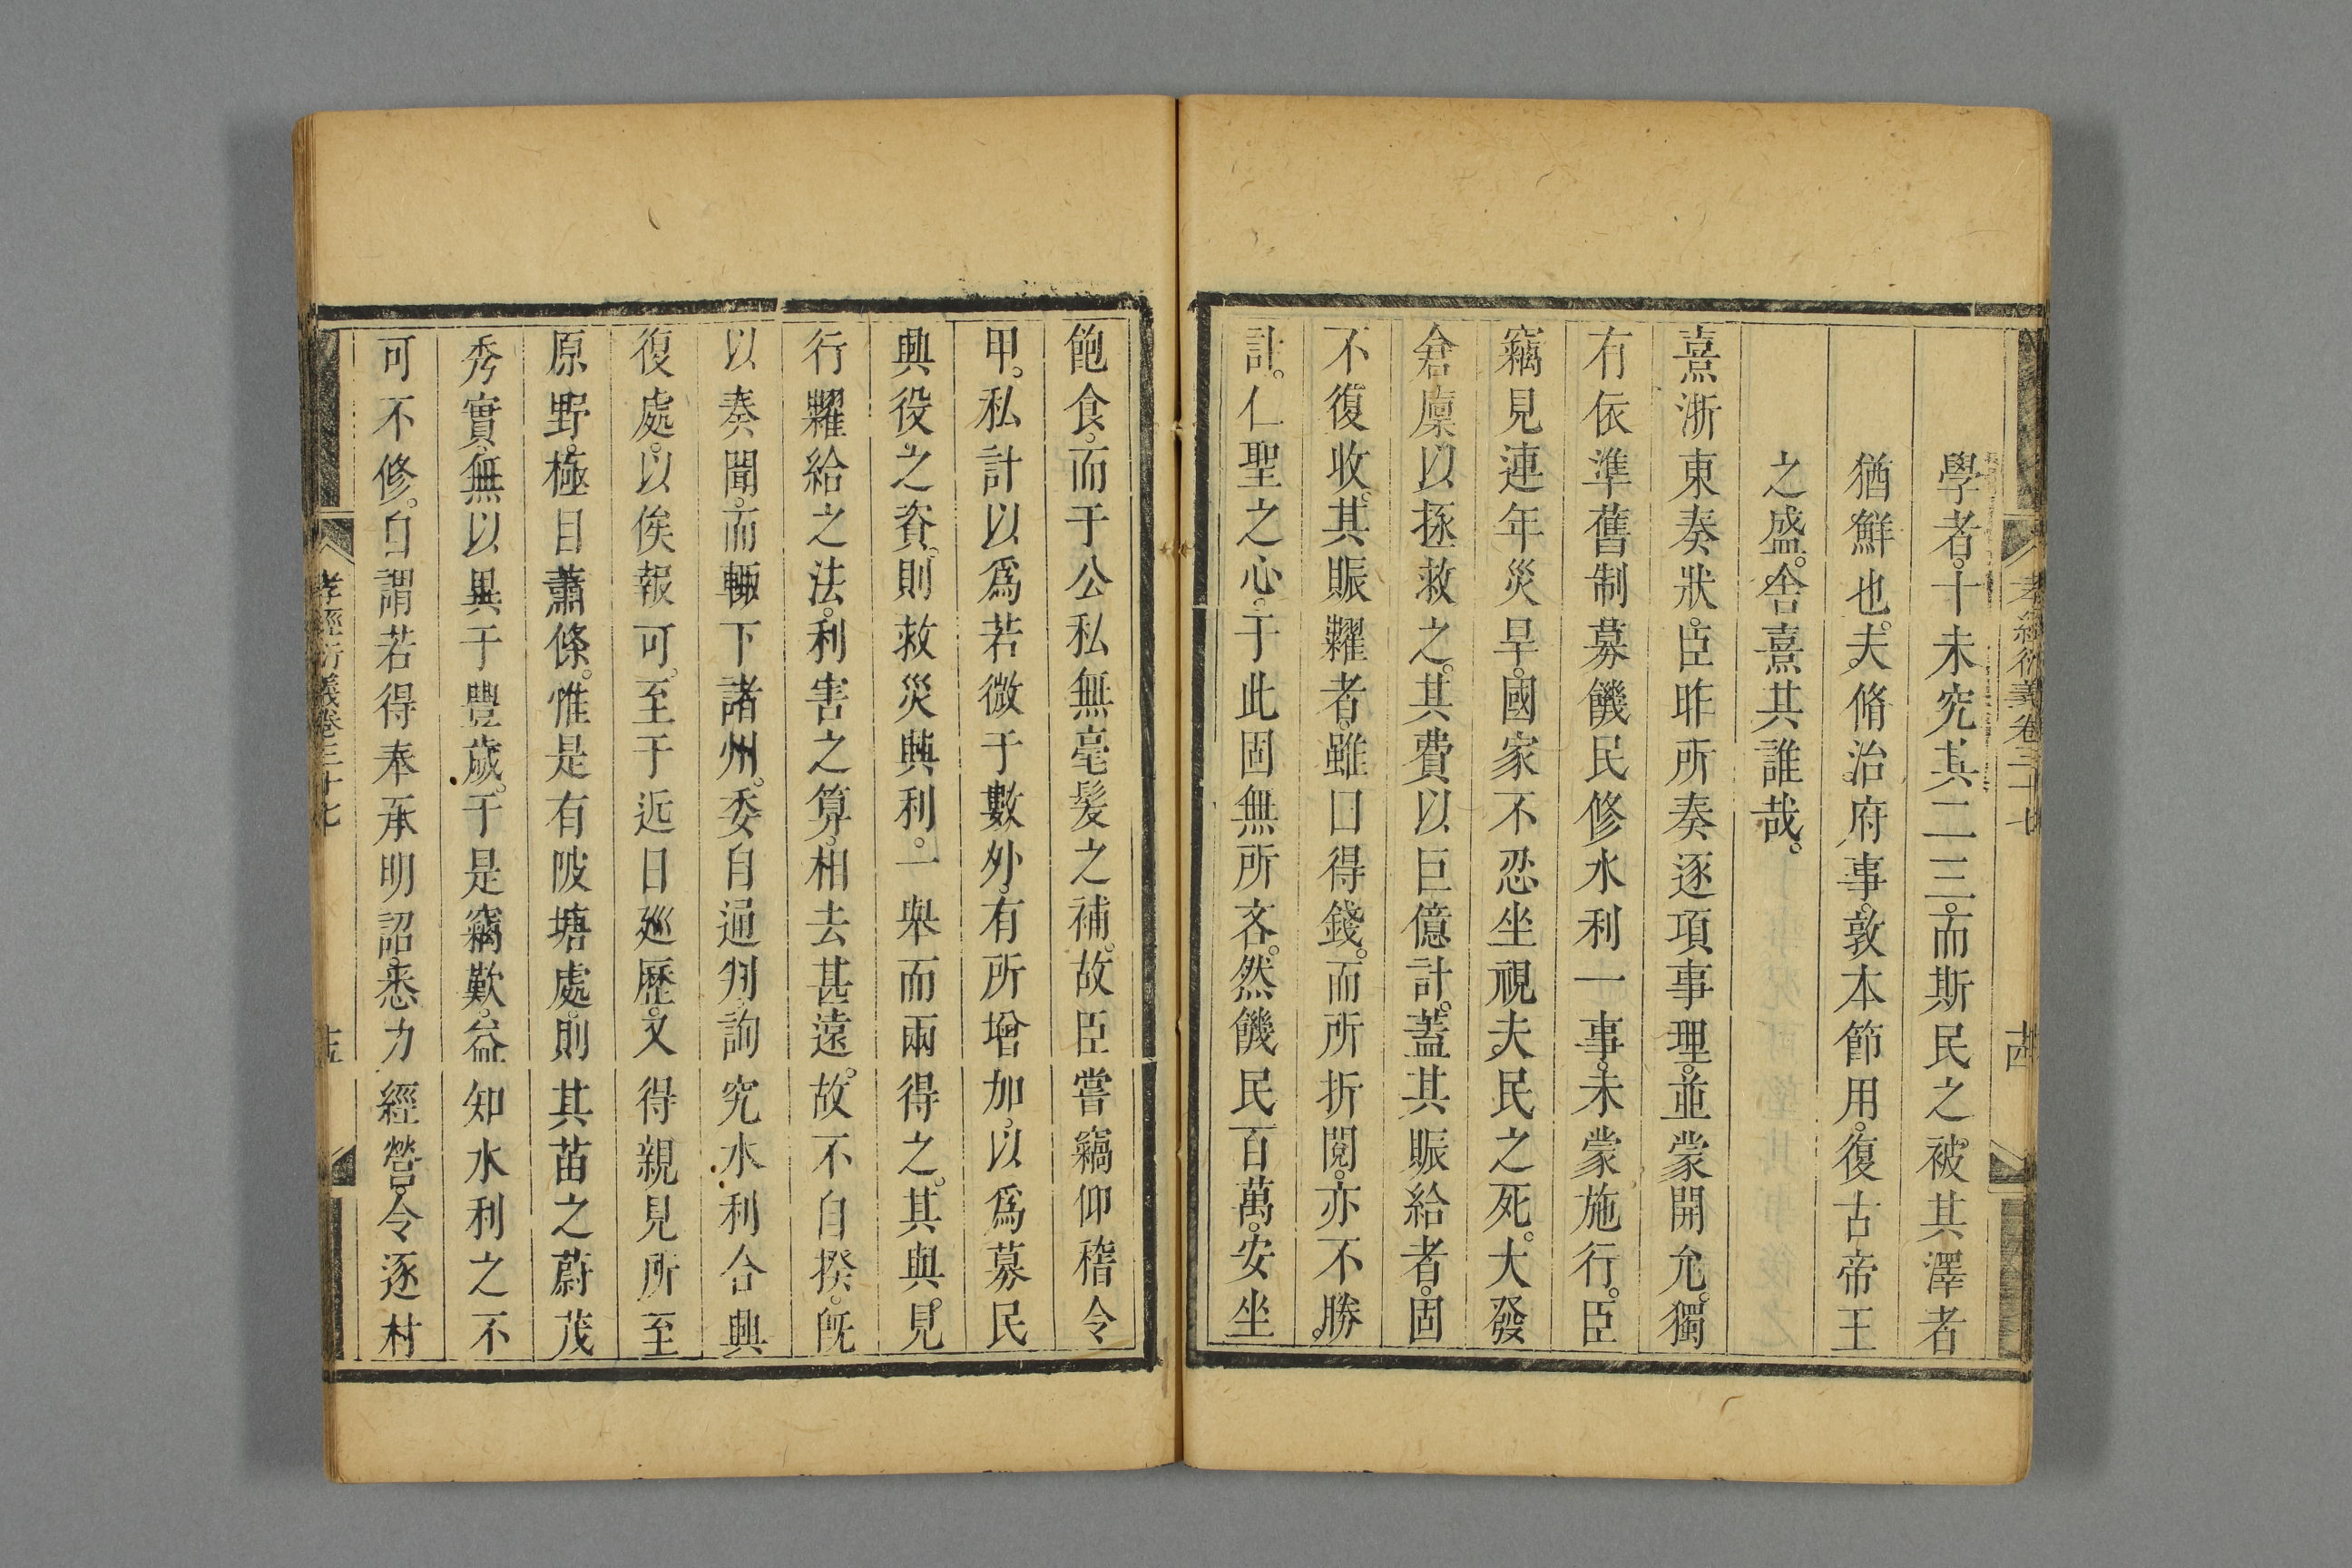 孝經衍義卷三十七
十四
學者。十未究其二三。而斯民之被其澤者
猶鮮也。夫脩治府事。敦本節用。復古帝王
之盛。舍熹其誰哉。
熹浙東奏狀。臣昨所奏逐項事理。並蒙開允。獨
有依準舊制募饑民修水利一事。未蒙施行。臣
竊見連年災旱。國家不忍坐視夫民之死。大發
倉廩以拯救之。其費以巨億計。蓋其賑給者。固
不復收。其賑糶者。雖曰得錢。而所折閱。亦不勝。
計。仁聖之心。于此固無所吝。然饑民百萬。安坐
飽食。而于公私無毫髮之補。故臣嘗竊仰稽令
甲。私計以爲若微于數外。有所增加。以爲募民
興役之資。則救災興利。一舉而兩得之。其與。見
行糶給之法。利害之算。相去甚遠。故不自揆。旣
以奏聞。而輙下諸州。委自通判詢究水利合興
復處。以俟報可。至于近日廵歷。又得親見所至
原野。極目蕭條。惟是有陂塘處。則其苗之蔚茂
秀實。無以異于豐歲。于是竊歎。益知水利之不
可不修。自謂若得奉承明詔。悉力經營。令逐村
孝經衍義卷三十七